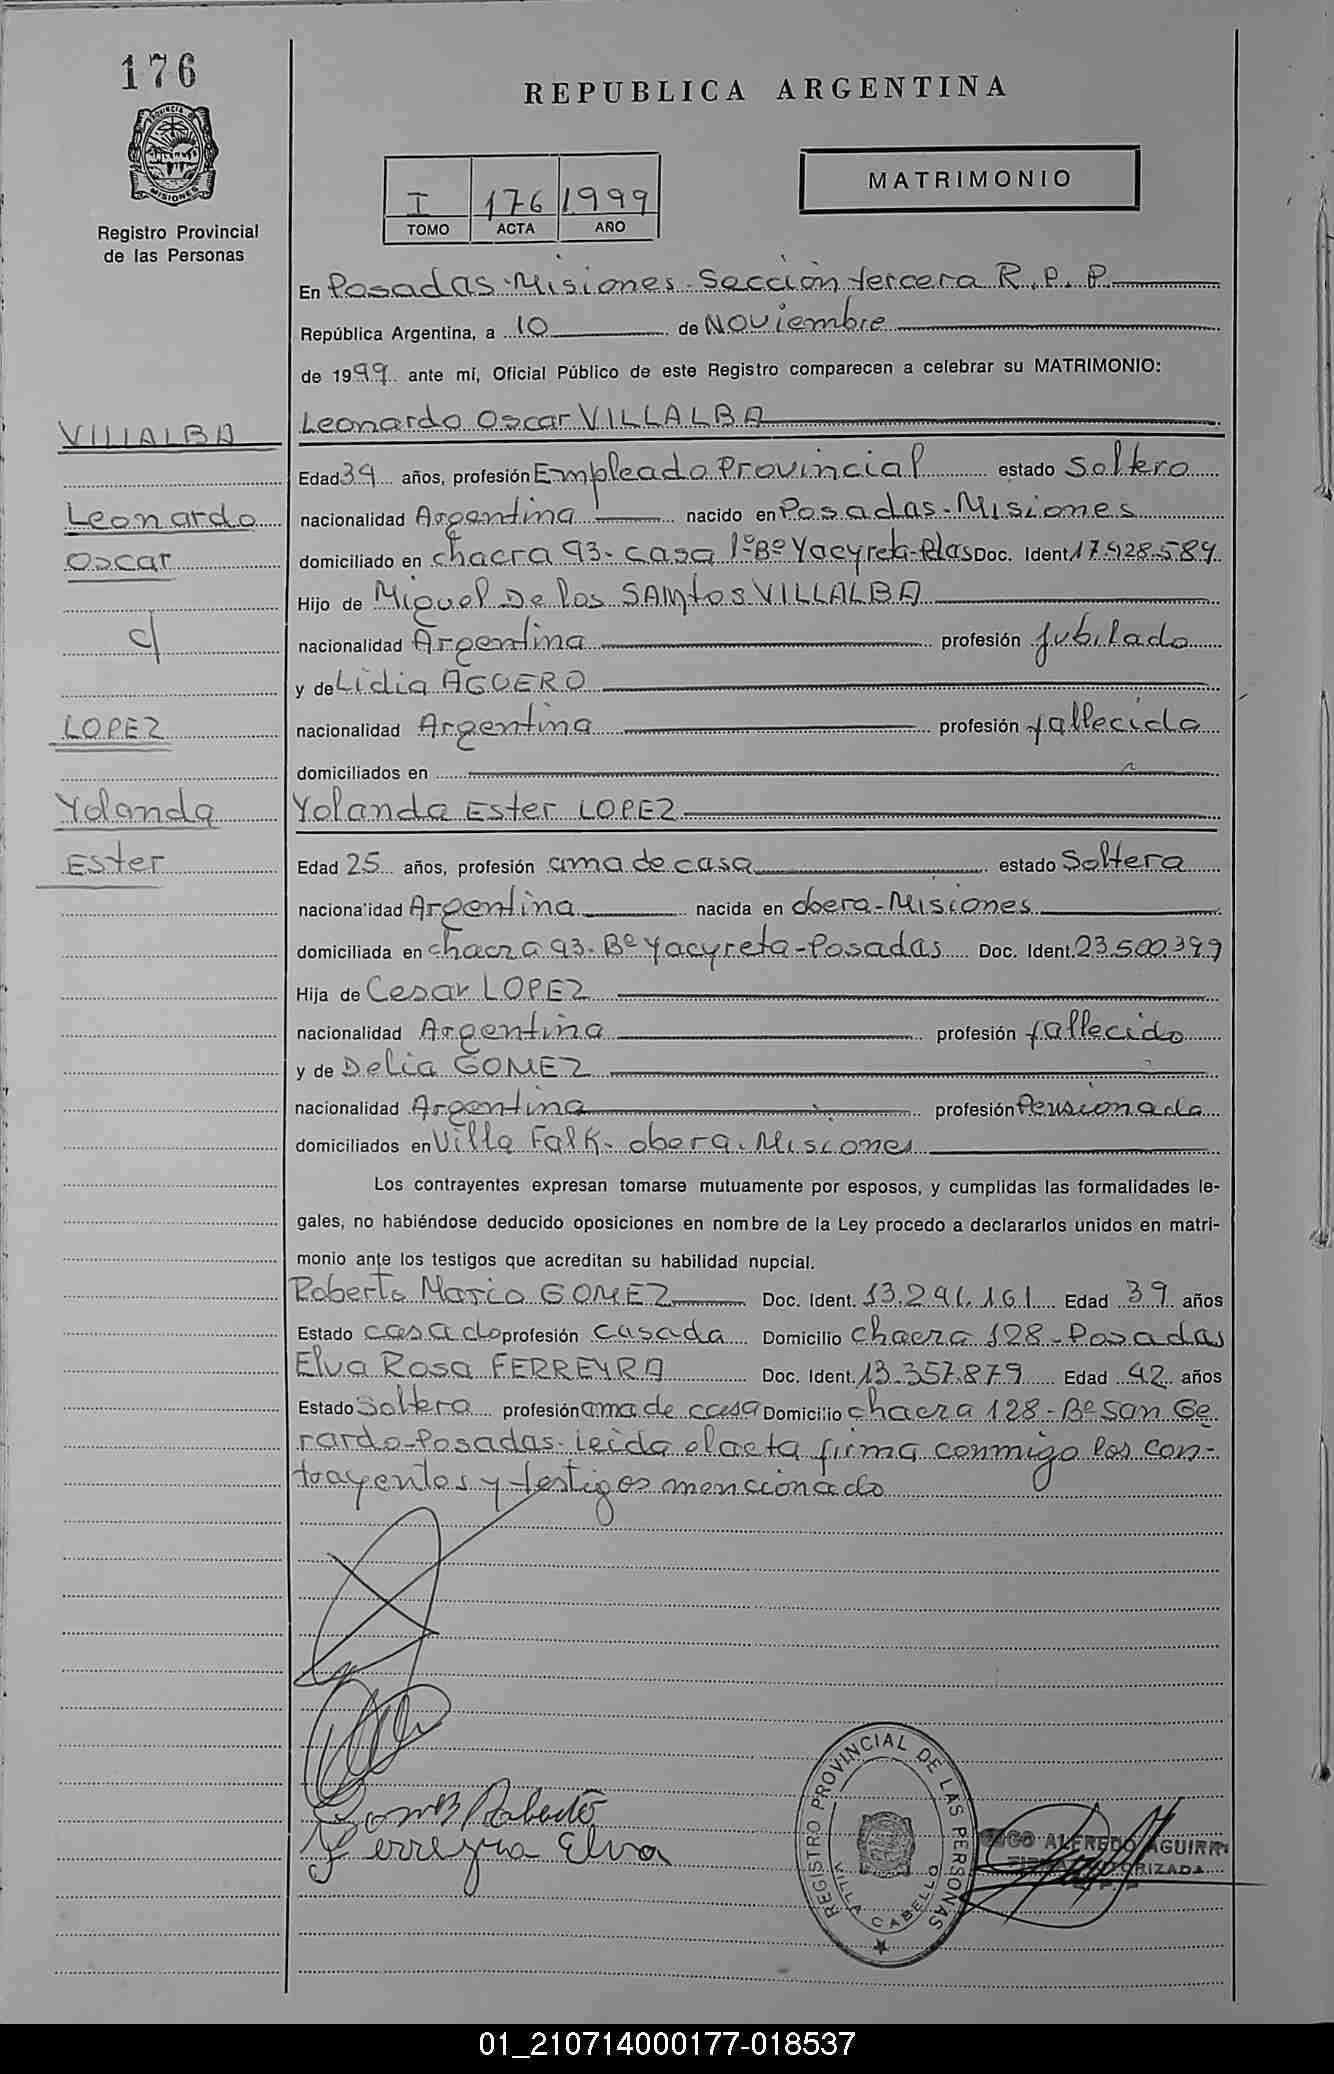 176
PROVINCIA D
MISIONES
Registro Provincial
de las Personas
REPUBLICA ARGENTINA
MATRIMONIO
I 176 1999
TOMO ACTA AÑO
En Posadas-Misiones-Sección tercera R.P.P.
República Argentina, a 10 de Noviembre
de 1999 ante mí, Oficial Público de este Registro comparecen a celebrar su MATRIMONIO:
VILLALBA
Leonardo
Oscar
c/
LOPEZ
Yolanda
Ester
Leonardo Oscar VILLALBA
Edad 34 años, profesión Empleado Provincial estado Soltero
nacionalidad Argentina nacido en Posadas-Misiones
domiciliado en chacra 93-casa 1°Bº Yacyreta-Pdas Doc. Ident 17.928.589
Hijo de Miguel De los SANtos VILLALBA
nacionalidad Argentina profesión Jubilado
y de Lidia AGUERO
nacionalidad Argentina profesión fallecida
domiciliados en
Yolanda Ester LOPEZ
Edad 25 años, profesión ama de casa estado Soltera
nacionalidad Argentina nacida en obera-Misiones
domiciliada en chacra 93-Bº Yacyreta-Posadas Doc. Ident. 23.500.399
Hija de Cesar LOPEZ
nacionalidad Argentina profesión fallecido
y de Delia GOMEZ
nacionalidad Argentina profesión Pensionada
domiciliados en Villa Falk-obera-Misiones
Los contrayentes expresan tomarse mutuamente por esposos, y cumplidas las formalidades le-
gales, no habiéndose deducido oposiciones en nombre de la Ley procedo a declararlos unidos en matri-
monio ante los testigos que acreditan su habilidad nupcial.
Roberto Mario GOMEZ Doc. Ident. 13.291.161 Edad 39 años
Estado casado profesión casada Domicilio chacra 128-Posadas
Elva Rosa FERREYRA Doc. Ident. 13.357.879 Edad 42 años
Estado Soltera profesión ama de casa Domicilio chacra 128-Bº San Ge
rardo-Posadas-leida el acta firma conmigo los con-
trayentes y testigos mencionado
Gomez Roberto
Ferreyra Elva
REGISTRO PROVINCIAL DE LAS PERSONAS
VILLA CABELLO
ALFREDO AGUIRR
AUTORIZADA
01_210714000177-018537